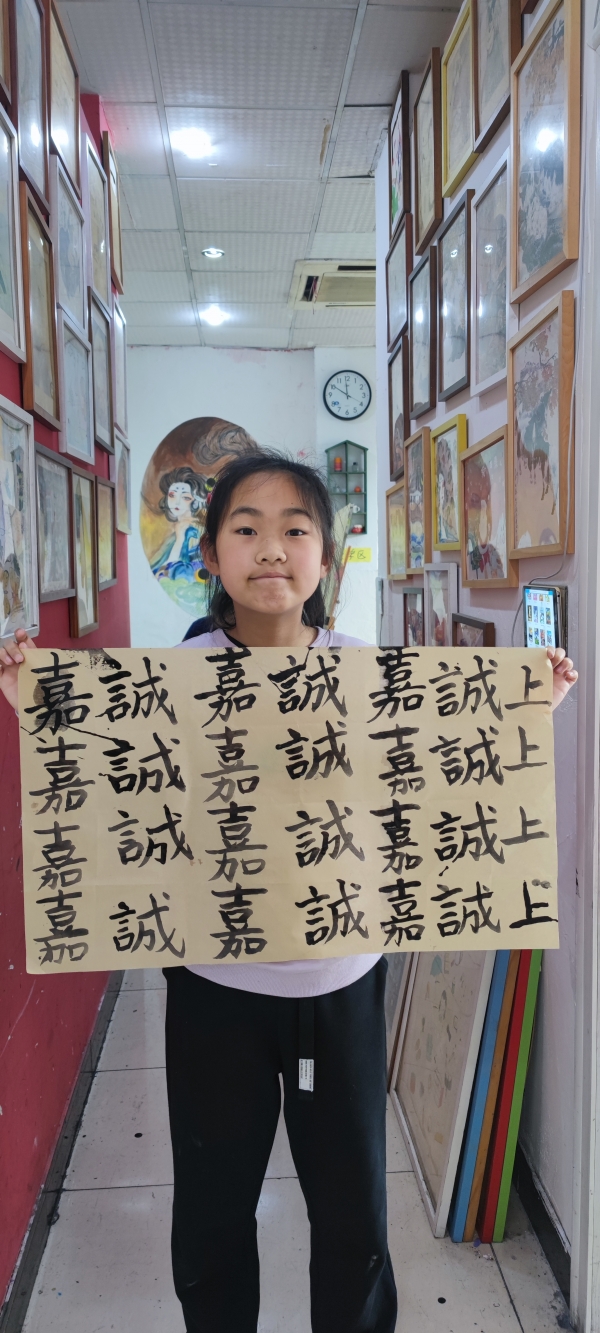 嘉誠嘉誠嘉誠上
嘉誠嘉誠嘉誠上
嘉誠嘉誠嘉誠上
嘉誠嘉誠嘉誠上